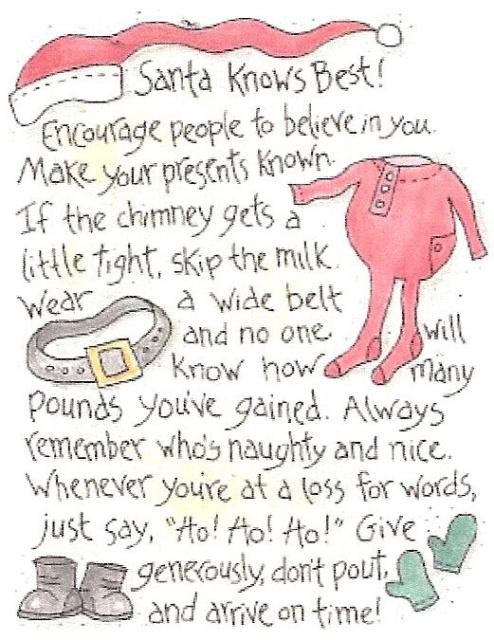 Santa Knows Best!
Encourage people to believe in you.
Make your presents known.
If the chimney gets a
little tight, skip the milk.
Wear a wide belt
and no one will
know how many
pounds you've gained. Always
remember who's naughty and nice.
Whenever you're at a loss for words,
just say, "Ho! Ho! Ho!" Give
generously, don't pout,
and arrive on time!